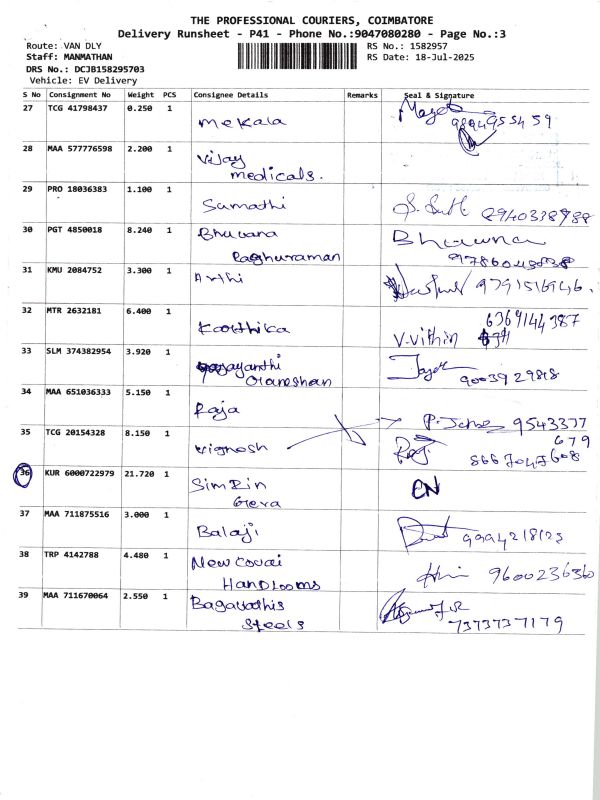 THE PROFESSIONAL COURIERS, COIMBATORE
Delivery Runsheet - P41 - Phone No.:9047080280 - Page No.:3
Route: VAN DLY
RS No.: 1582957
Staff: MANMATHAN
RS Date: 18-Jul-2025
DRS No.: DCJB158295703
Vehicle: EV Delivery
S No Consignment No Weight PCS Consignee Details Remarks Seal & Signature
27 TCG 41798437 0.250 1
Mekala
28 MAA 577776598 2.200 1
Vijay
medicals.
29 PRO 18036383 1.100 1
Sumathi
8940338988
30 PGT 4850018 8.240 1
Bhuvana Bhuvna
Raghuraman
31 KMU 2084752 3.300 1
Arthi
32 MTR 2632181 6.400 1
6369144387
Karthika V.Vithin
33 SLM 374382954 3.920 1
Jayanthi
Ganeshan 9003929818
34 MAA 651036333 5.150 1
Raja
9543377
35 TCG 20154328 8.150 1
679
Vignesh 8667047608
36 KUR 6000722979 21.720 1
Simrin CN
Gera
37 MAA 711875516 3.000 1
Balaji 9994218123
38 TRP 4142788 4.480 1
New Covai
Handlooms 9600236360
39 MAA 711670064 2.550 1
Bagavathis
Steels 7373737179